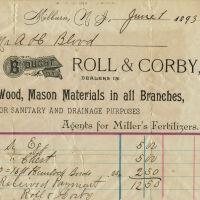 Milburn, N. J., June 1 1893
Mr A H Blood
BOUGHT OF
ROLL & CORBY,
DEALERS IN
Wood, Mason Materials in all Branches,
FOR SANITARY AND DRAINAGE PURPOSES
Agents for Miller's Fertilizers.
Egg 5.00
Chest 5.00
2.50
Received Payment 12.50
Roll & Corby